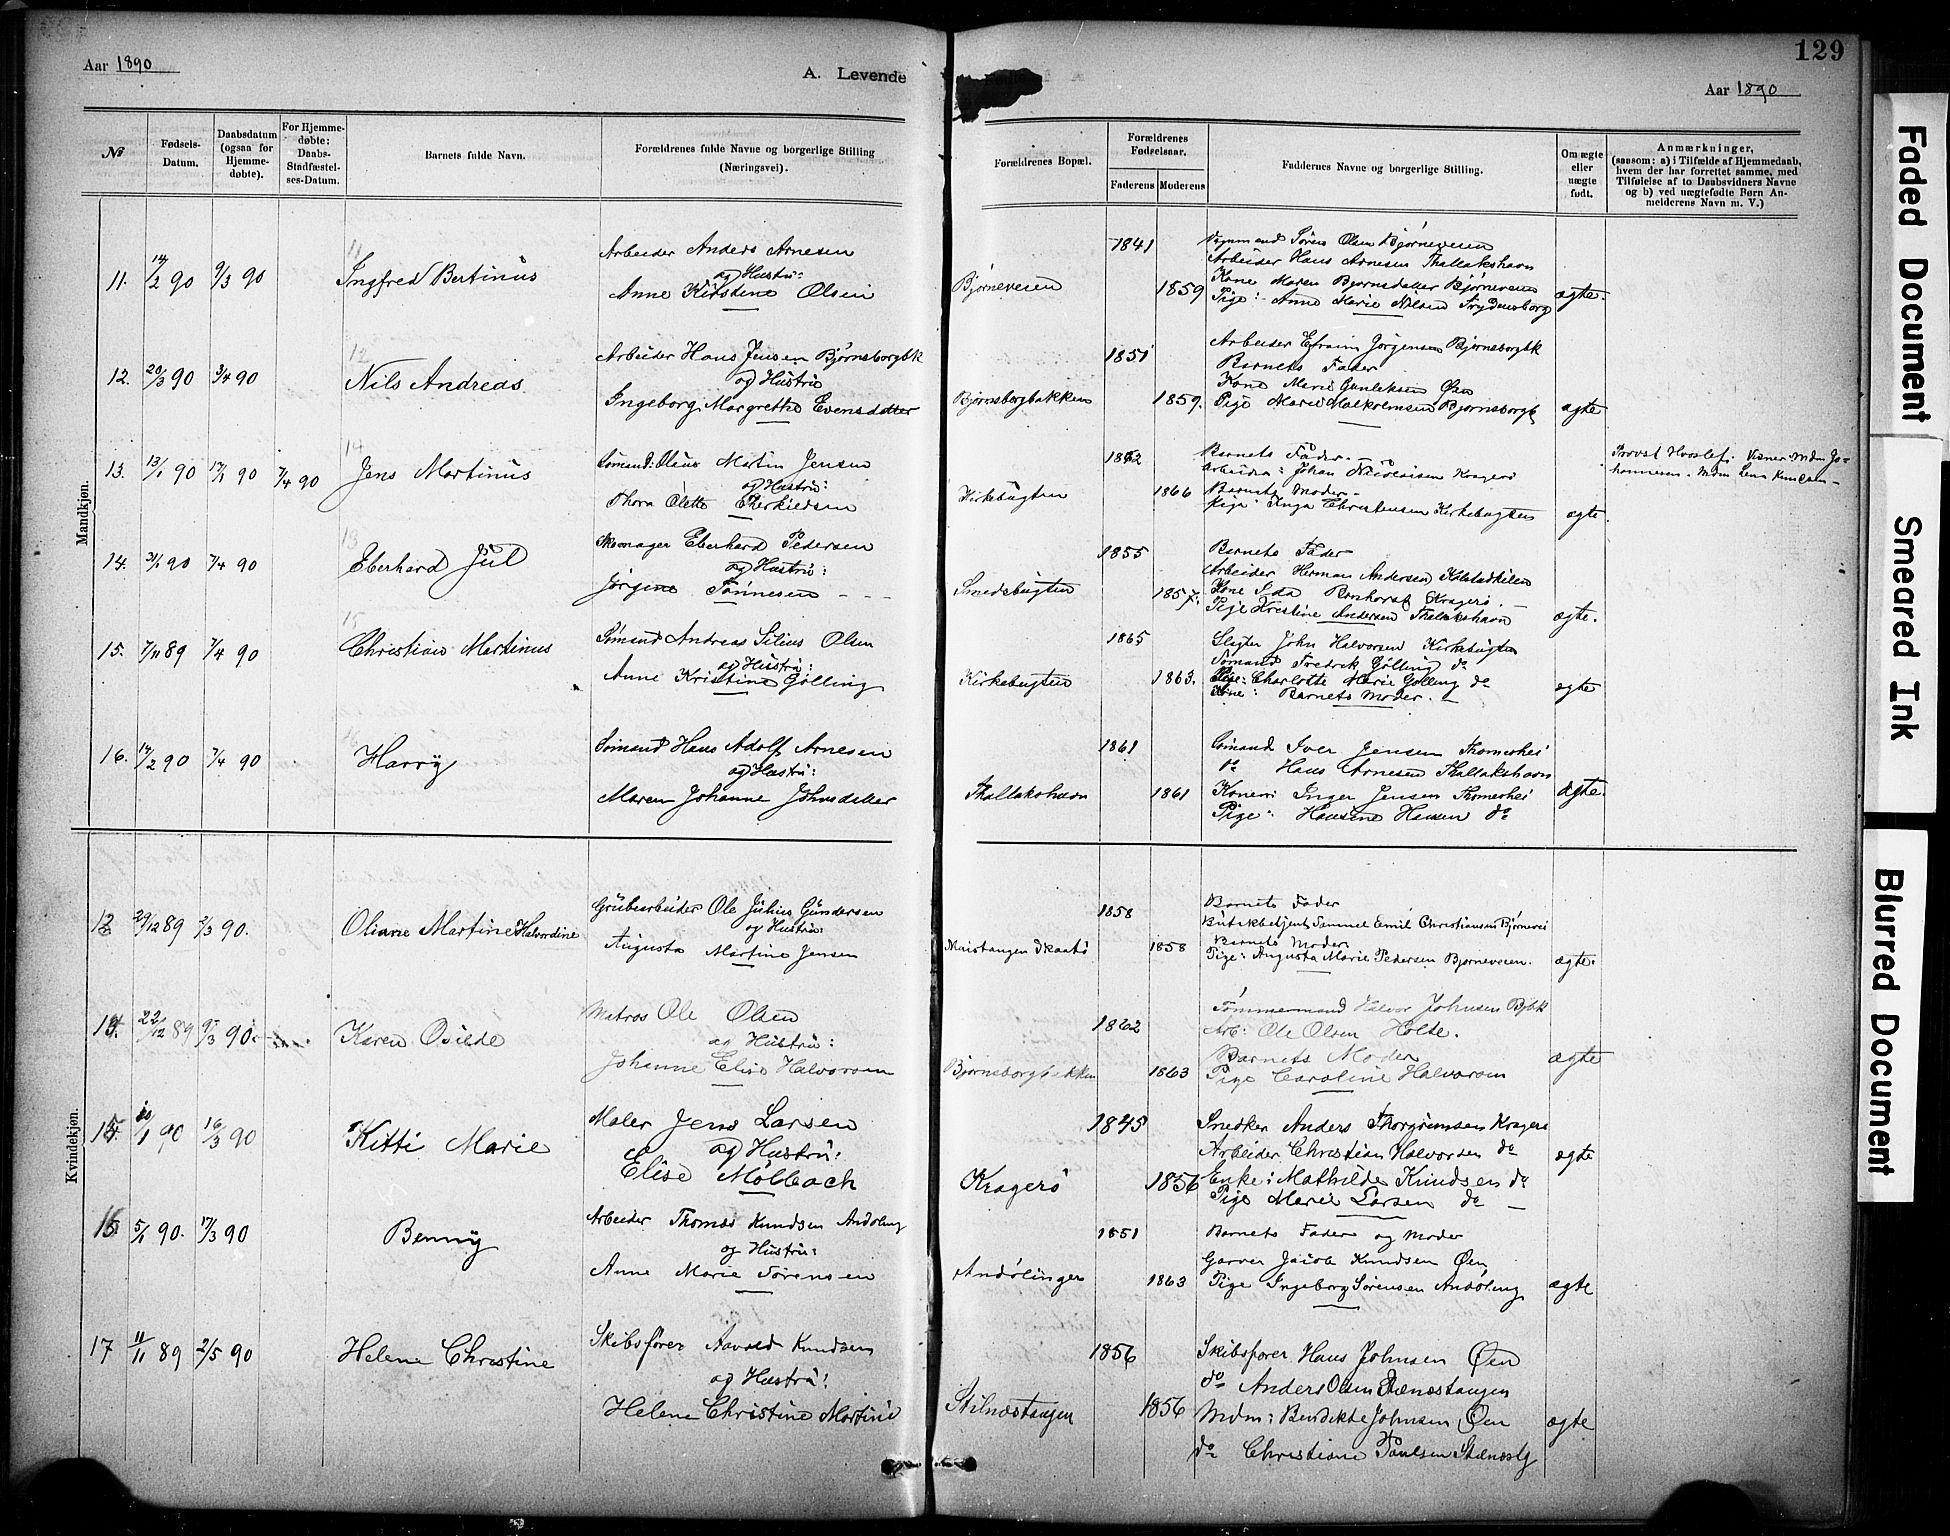 Aar 1890
A. Levende
129
Aar 1890
№
Fødsels-Datum.
Daabsdatum (ogsaa for Hjemmedøbte).
For Hjemmedøbte: Daabs-Stadfæstelses-Datum.
Barnets fulde Navn.
Forældrenes fulde Navne og borgerlige Stilling (Næringsvei).
Forældrenes Bopæl.
Forældrenes Fødselsaar.
Faderens
Moderens
Faddernes Navne og borgerlige Stilling.
Om ægte eller uægte født.
Anmærkninger,
(saasom: a) i Tilfælde af Hjemmedaab, hvem der har forrettet samme, med Tilføielse af to Daabsvidners Navne og b) ved uægtefødte Børn Anmelderens Navn m. V.)
Mandkjøn.
11. 14/2 90 9/3 90 Ingfred Bertinus
Arbeider Anders Arnesen
og Hustru:
Anne Kirstine Olsen
Bjørneveien 1841 1859
Søren Olsen Bjørneveien
Arbeider Hans Arnesen Thallakshavn
Kone Maren Bjørnsdatter Bjørneveien
Pige: Anne Marie Nilsen Frydensborg
ægte.
12. 20/3 90 3/4 90 Nils Andreas
Arbeider Hans Jensen Bjørnsborgbk
og Hustru
Ingeborg Margrethe Evensdatter
Bjørnsborgbakken 1851 1859.
Arbeider Efraim Jørgensen Bjørnsborgbk
Barnets Fader
Kone Marie Gunleksen Øen
Pige Marie Malkolmsen Bjørnsborgb
ægte
13. 13/1 90 17/1 90 7/4 90 Jens Martinus
Sømand: Olaus Martin Jensen
og Hustru:
Thora Olette Therkieldsen
Kirkebugten 1862 1866
Barnets Fader.
Arbeider: Johan Kragerø
Barnets Moder
Pige Inga Christensen Kirkebugten
ægte.
Provst Hvoslef.
14. 31/1 90 7/4 90 Eberhard Jul
Skomager Eberhard Pedersen
og Hustru:
Jørgine Tønnesen
Smedsbugten 1855 1857.
Barnets Fader
Arbeider Herman Andersen Kalstadkilen
Kone Ida Kragerø.
Pige Kristine Andersen Thallakshavn
ægte.
15. 7/11 89 7/4 90 Christian Martinus
Sømand Andreas Silius Olsen
og Hustru:
Anne Kristine Gølling
Kirkebugten 1865 1863.
John Halvorsen Kirkebugten
Sømand Fredrik Gølling do
Pige: Charlotte Marie Gølling do
Kone: Barnets Moder.
ægte
16. 14/2 90 7/4 90 Harry
Sømand Hans Adolf Arnesen
og Hustru:
Maren Johanne Johnsdatter
Thallakshavn 1861 1861
Sømand Iver Jensen Thomeshei
do Hans Arnesen Thallakshavn
Konen Inger Jensen Thomeshei
Pige: Hansine Hansen do
ægte.
Kvindekjøn.
13 29/12 89 2/3 90. Oliane Martine Halvordine
Grubearbeider Ole Julius Gundersen
og Hustru:
Augusta Martine Jensen
Skaatø 1858 1858
Barnets Fader
Butikbetjent Samuel Emil Christiansen Bjørnevei
Barnets Moder
Pige: Augusta Marie Pedersen Bjørneveien.
ægte.
14. 22/12 89 9/3 90. Karen Osilde
Matros Ole Olsen
og Hustru:
Johanne Elise Halvorsen
Bjørnsborgbakken 1862 1863
Tømmermand Halvor Johnsen Bjbk
Arb: Ole Olsen Holte.
Barnets Moder
Pige Caroline Halvorsen
ægte
15. 20/1 90 16/3 90 Kitti Marie
Maler Jens Larsen
og Hustru:
Elise Mølbach
Kragerø 1845 1856
Snedker Anders Thorgrimsen Kragerø
Arbeider Christian Halvorsen do
Enke: Mathilde Knudsen do
Pige Marie Larsen do
ægte
16 5/1 90. 17/3 90 Benny
Arbeider Thomas Knudsen Andøling
og Hustru:
Anne Marie Sørensen
Andølingen 1851 1863
Barnets Fader og Moder
Garver Jacob Knudsen Øen
Pige Ingeborg Sørensen Andøling
ægte
17 11/11 89 2/5 90 Helene Christine
Skibsfører Aavold Knudsen
og Hustru:
Helene Christine Martine
Stilnæstangen 1856 1856
Skibsfører Hans Johnsen Øen
do Anders Olsen Stenæstangen
Mdm: Bendikte Johnsen Øen
do Christiane Paulsen
ægte
Faded Document
Smeared Ink
Blurred Document